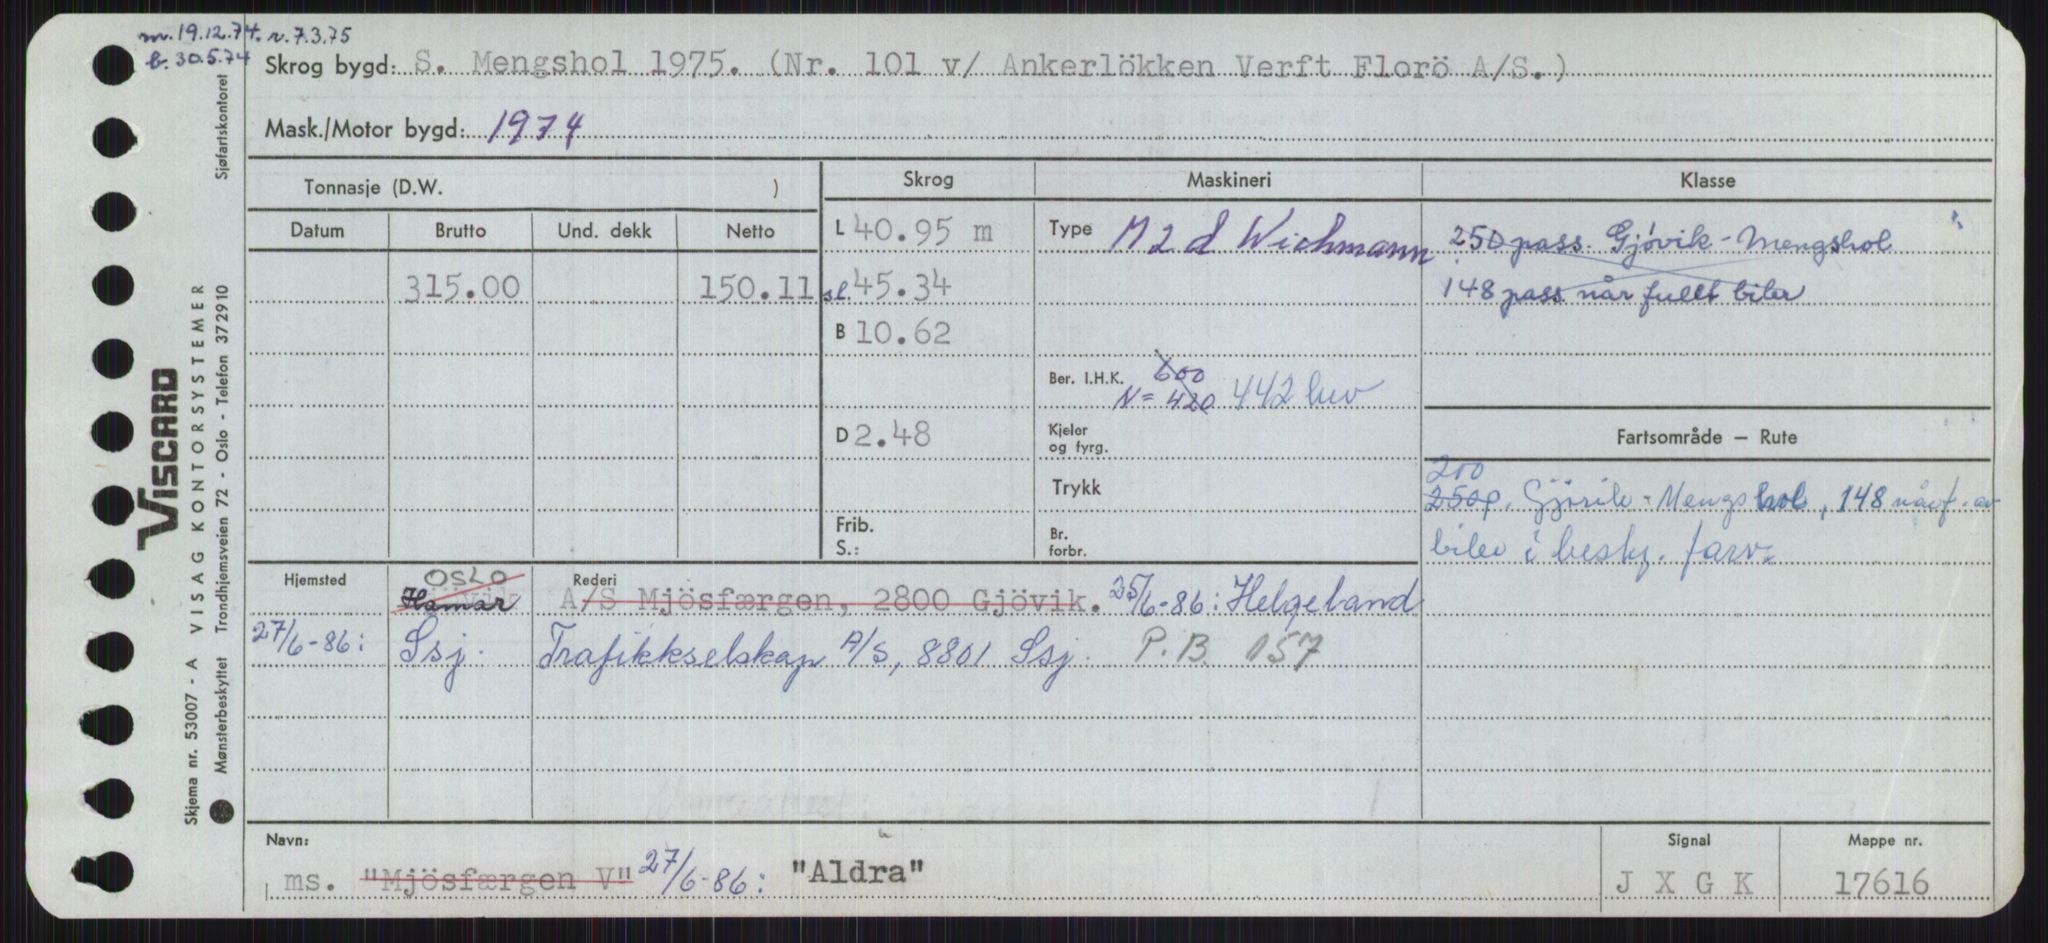 m. 19.12.74. r. 7.3.75
b. 30.5.74
Skrog bygd: S. Mengshol 1975. (Nr. 101 v/ Ankerlökken Verft Florö A/S.)
Mask./Motor bygd: 1974
Tonnasje (D.W. )
Skrog
Maskineri
Klasse
Datum Brutto Und. dekk Netto
315.00 150.11
L 40.95 m
sl. 45.34
B 10.62
D 2.48
Frib.
S.:
Type M 2 d Wichmann
Ber. I.H.K. 600
N = 420 442 hw
Kjeler
og fyrg.
Trykk
Br.
forbr.
250 pass. Gjövik - Mengshol
148 pass når fullt biler
Fartsområde — Rute
200
250p. Gjövik - Mengshol, 148 når f. av
biler i besky. farv.
Hjemsted Rederi
OSLO
Hamar A/S Mjösfærgen, 2800 Gjövik. 25/6-86: Helgeland
27/6-86: Ssj. Trafikkselskap A/S, 8801 Ssj. P.B. 157
Navn: Signal Mappe nr.
ms. "Mjösfærgen V" 27/6-86: "Aldra" J X G K 17616
VISCARD
Skjema nr. 53007 - A VISAG KONTORSYSTEMER
Mønsterbeskyttet Trondhjemsveien 72 - Oslo - Telefon 372910 Sjøfartskontoret